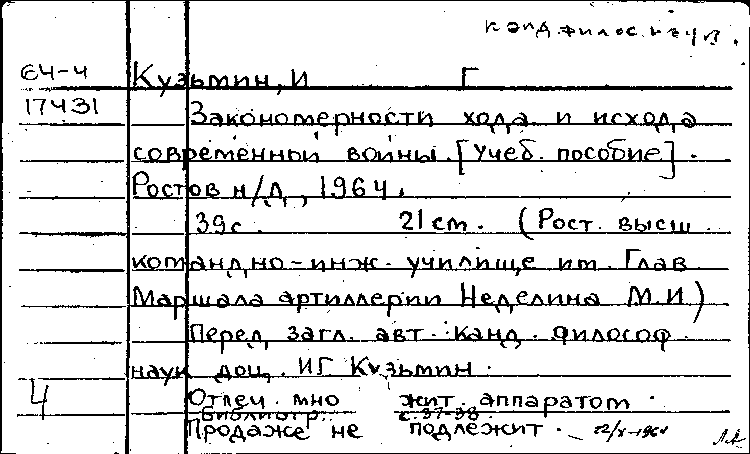 канд. филос. наук.
64-4
17431
Кузьмин, И Г
Закономерности хода и исхода
современной войны. [Учеб. пособие].
Ростов н/Д, 1964.
39с. 21 см. (Рост. высш
командно-инж. училище им. Глав
Маршала артиллерии Неделина М.И)
Перед загл. авт. канд. философ
наук доц. ИГ Кузьмин.
4
Отпеч. мно жит. аппаратом.
Библиогр. с. 37-38.
Продаже не подлежит.